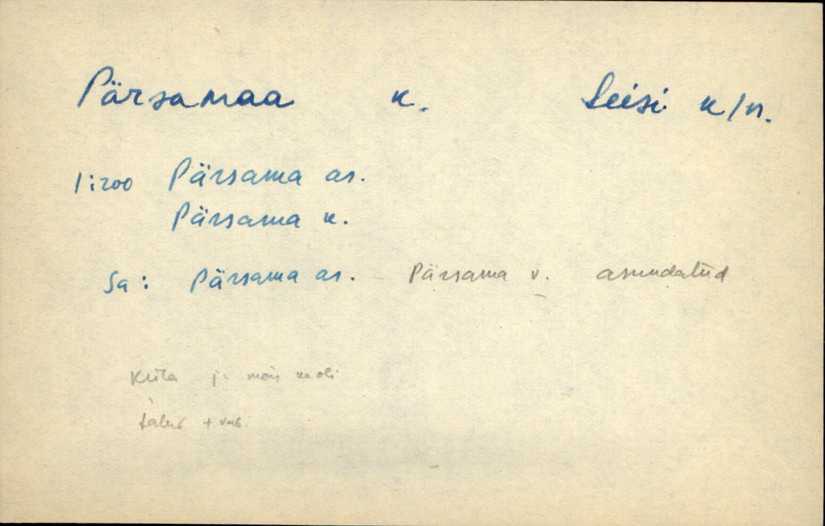 Pärsamaa k. Leisi k/n.
1:200 Pärsama as.
Pärsama k.
Sa: Pärsama as. Pärsama v. asundatud
Küla ja mõis